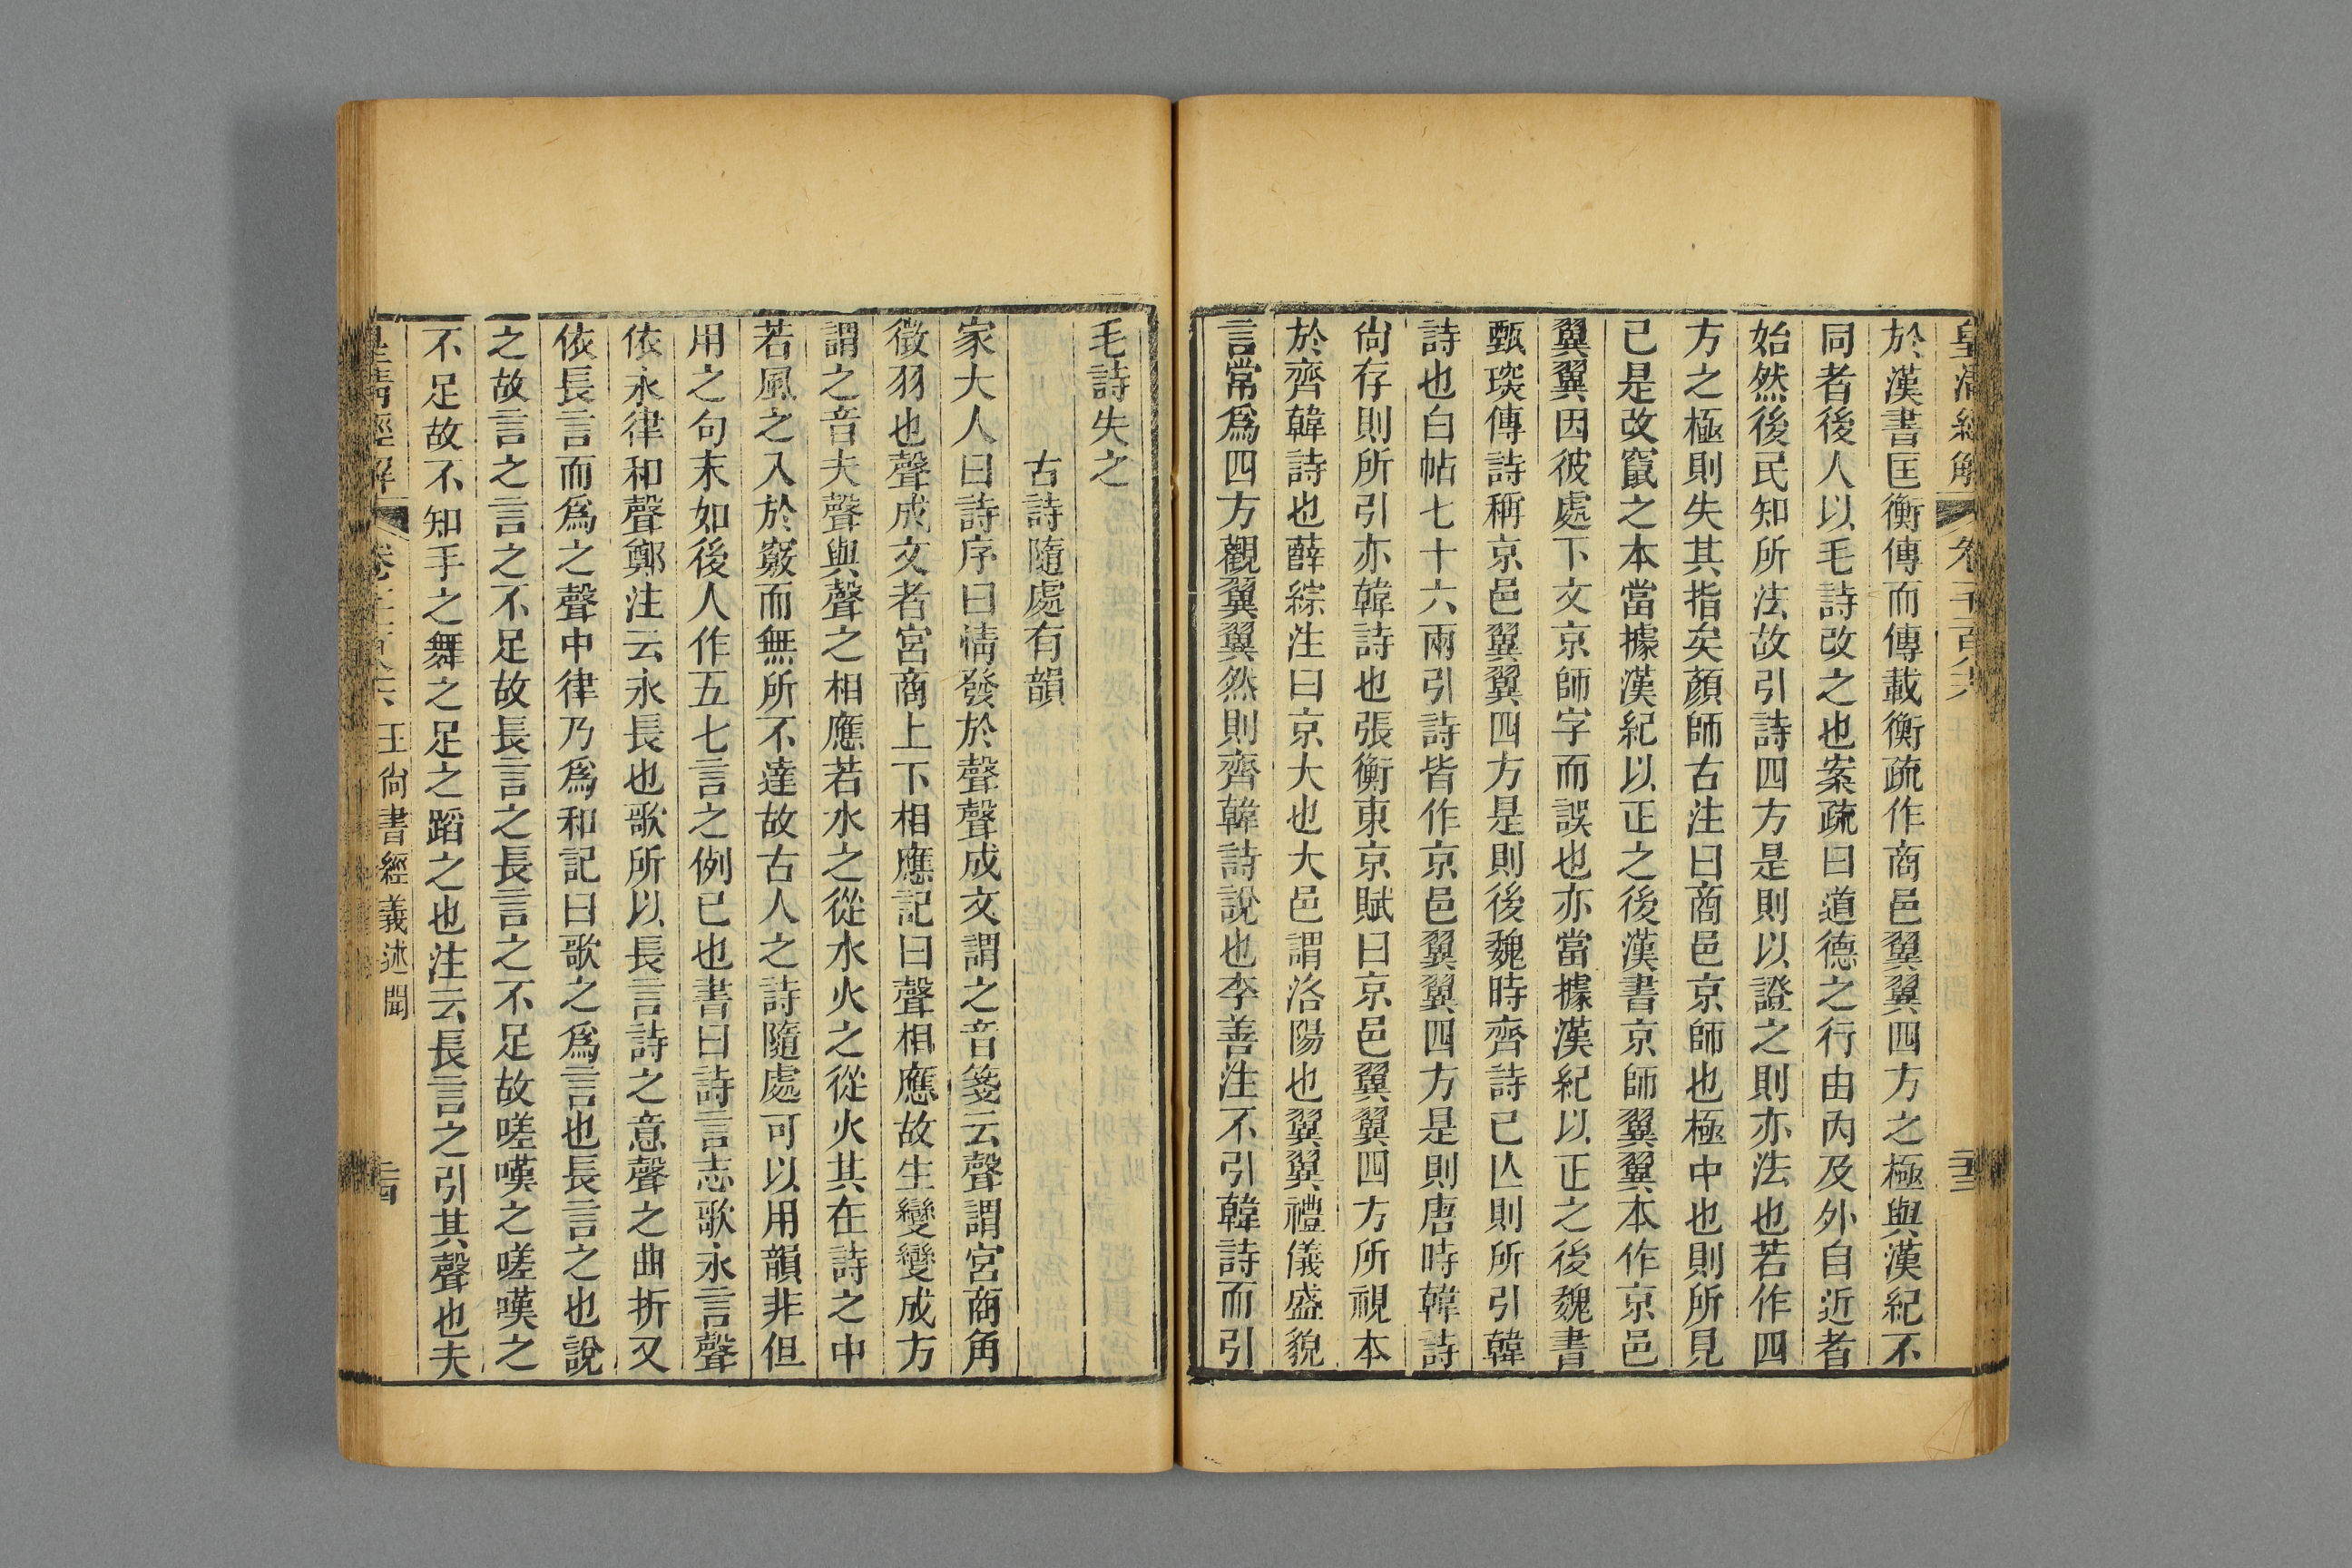 皇清經解
卷千一百八十六
於漢書匡衡傳而傳載衡疏作商邑翼翼四方之極與漢紀不
同者後人以毛詩改之也案疏曰道德之行由內及外自近者
始然後民知所法故引詩四方是則以證之則亦法也若作四
方之極則失其指矣顏師古注曰商邑京師也極中也則所見
已是改竄之本當據漢紀以正之後漢書京師翼翼本作京邑
翼翼因彼處下文京師字而誤也亦當據漢紀以正之後魏書
甄琛傳詩稱京邑翼翼四方是則後魏時齊詩已亾則所引韓
詩也白帖七十六兩引詩皆作京邑翼翼四方是則唐時韓詩
尙存則所引亦韓詩也張衡東京賦曰京邑翼翼四方所視本
於齊韓詩也薛綜注曰京大也大邑謂洛陽也翼翼禮儀盛貌
言常爲四方觀翼翼然則齊韓詩說也李善注不引韓詩而引
毛詩失之
古詩隨處有韻
家大人曰詩序曰情發於聲聲成文謂之音箋云聲謂宮商角
徵羽也聲成文者宮商上下相應記曰聲相應故生變變成方
謂之音夫聲與聲之相應若水之從水火之從火其在詩之中
若風之入於竅而無所不達故古人之詩隨處可以用韻非但
用之句末如後人作五七言之例已也書曰詩言志歌永言聲
依永律和聲鄭注云永長也歌所以長言詩之意聲之曲折又
依長言而爲之聲中律乃爲和記曰歌之爲言也長言之也說
之故言之言之不足故長言之長言之不足故嗟嘆之嗟嘆之
不足故不知手之舞之足之蹈之也注云長言之引其聲也夫
皇清經解
王尙書經義述聞